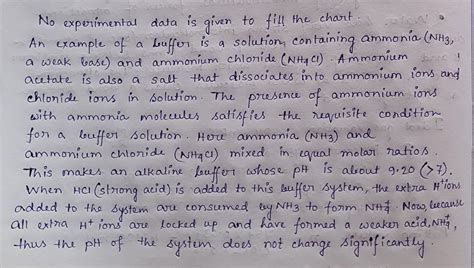 No experimental data is given to fill the chart.
An example of a buffer is a solution, containing ammonia (NH3,
a weak base) and ammonium chloride (NH4Cl). Ammonium
acetate is also a salt that dissociates into ammonium ions and
chloride ions in solution. The presence of ammonium ions
with ammonia molecules satisfies the requisite condition
for a buffer solution. Here ammonia (NH3) and
ammonium chloride (NH4Cl) mixed in equal molar ratios.
This makes an alkaline buffer whose pH is about 9.20 (>7).
When HCl (strong acid) is added to this buffer system, the extra H+ ions
added to the system are consumed by NH3 to form NH4+. Now, because
all extra H+ ions are locked up and have formed a weaker acid, NH4+,
thus the pH of the system does not change significantly.